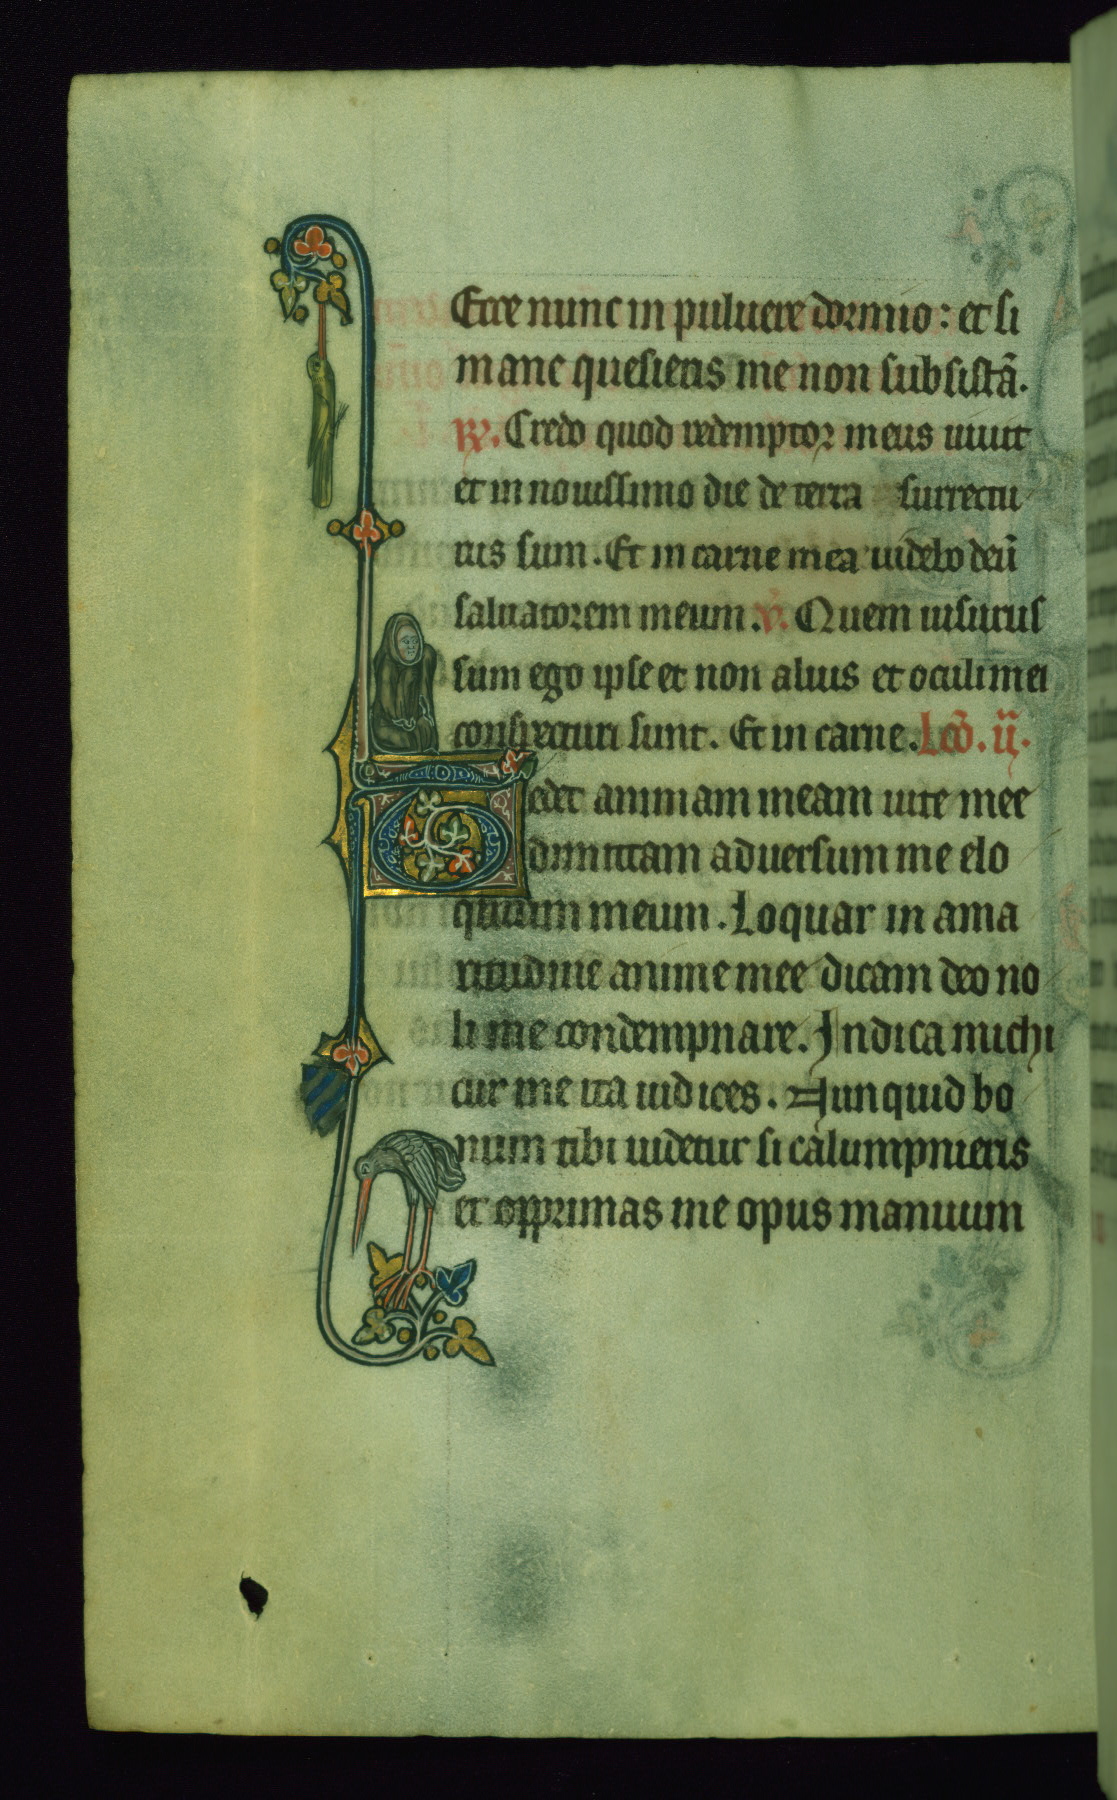 Ecce nunc in puluere dormio: et si
mane quesieris me non subsistã.
℟. Credo quod redemptor meus uiuit
et in nouissimo die de terra surrectu
rus sum. Et in carne mea uidebo deũ
saluatorem meum. ℣. Quem uisurus
sum ego ipse et non alius et oculi mei
conspecturi sunt. Et in carne. Lcõ. ij.
Tedet animam meam uite mee
dimittam aduersum me elo
quium meum. Loquar in ama
ritudine anime mee dicam deo no
li me condempnare. Indica michi
cur me ita iudices. Nunquid bo
num tibi uidetur si calumpnieris
et opprimas me opus manuum